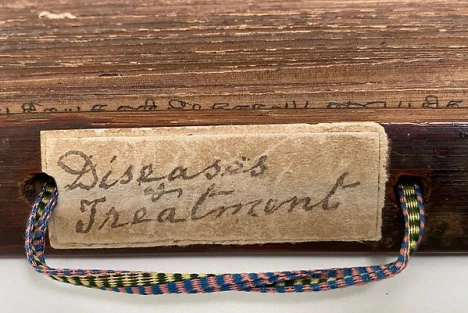 Diseases
&
Treatment